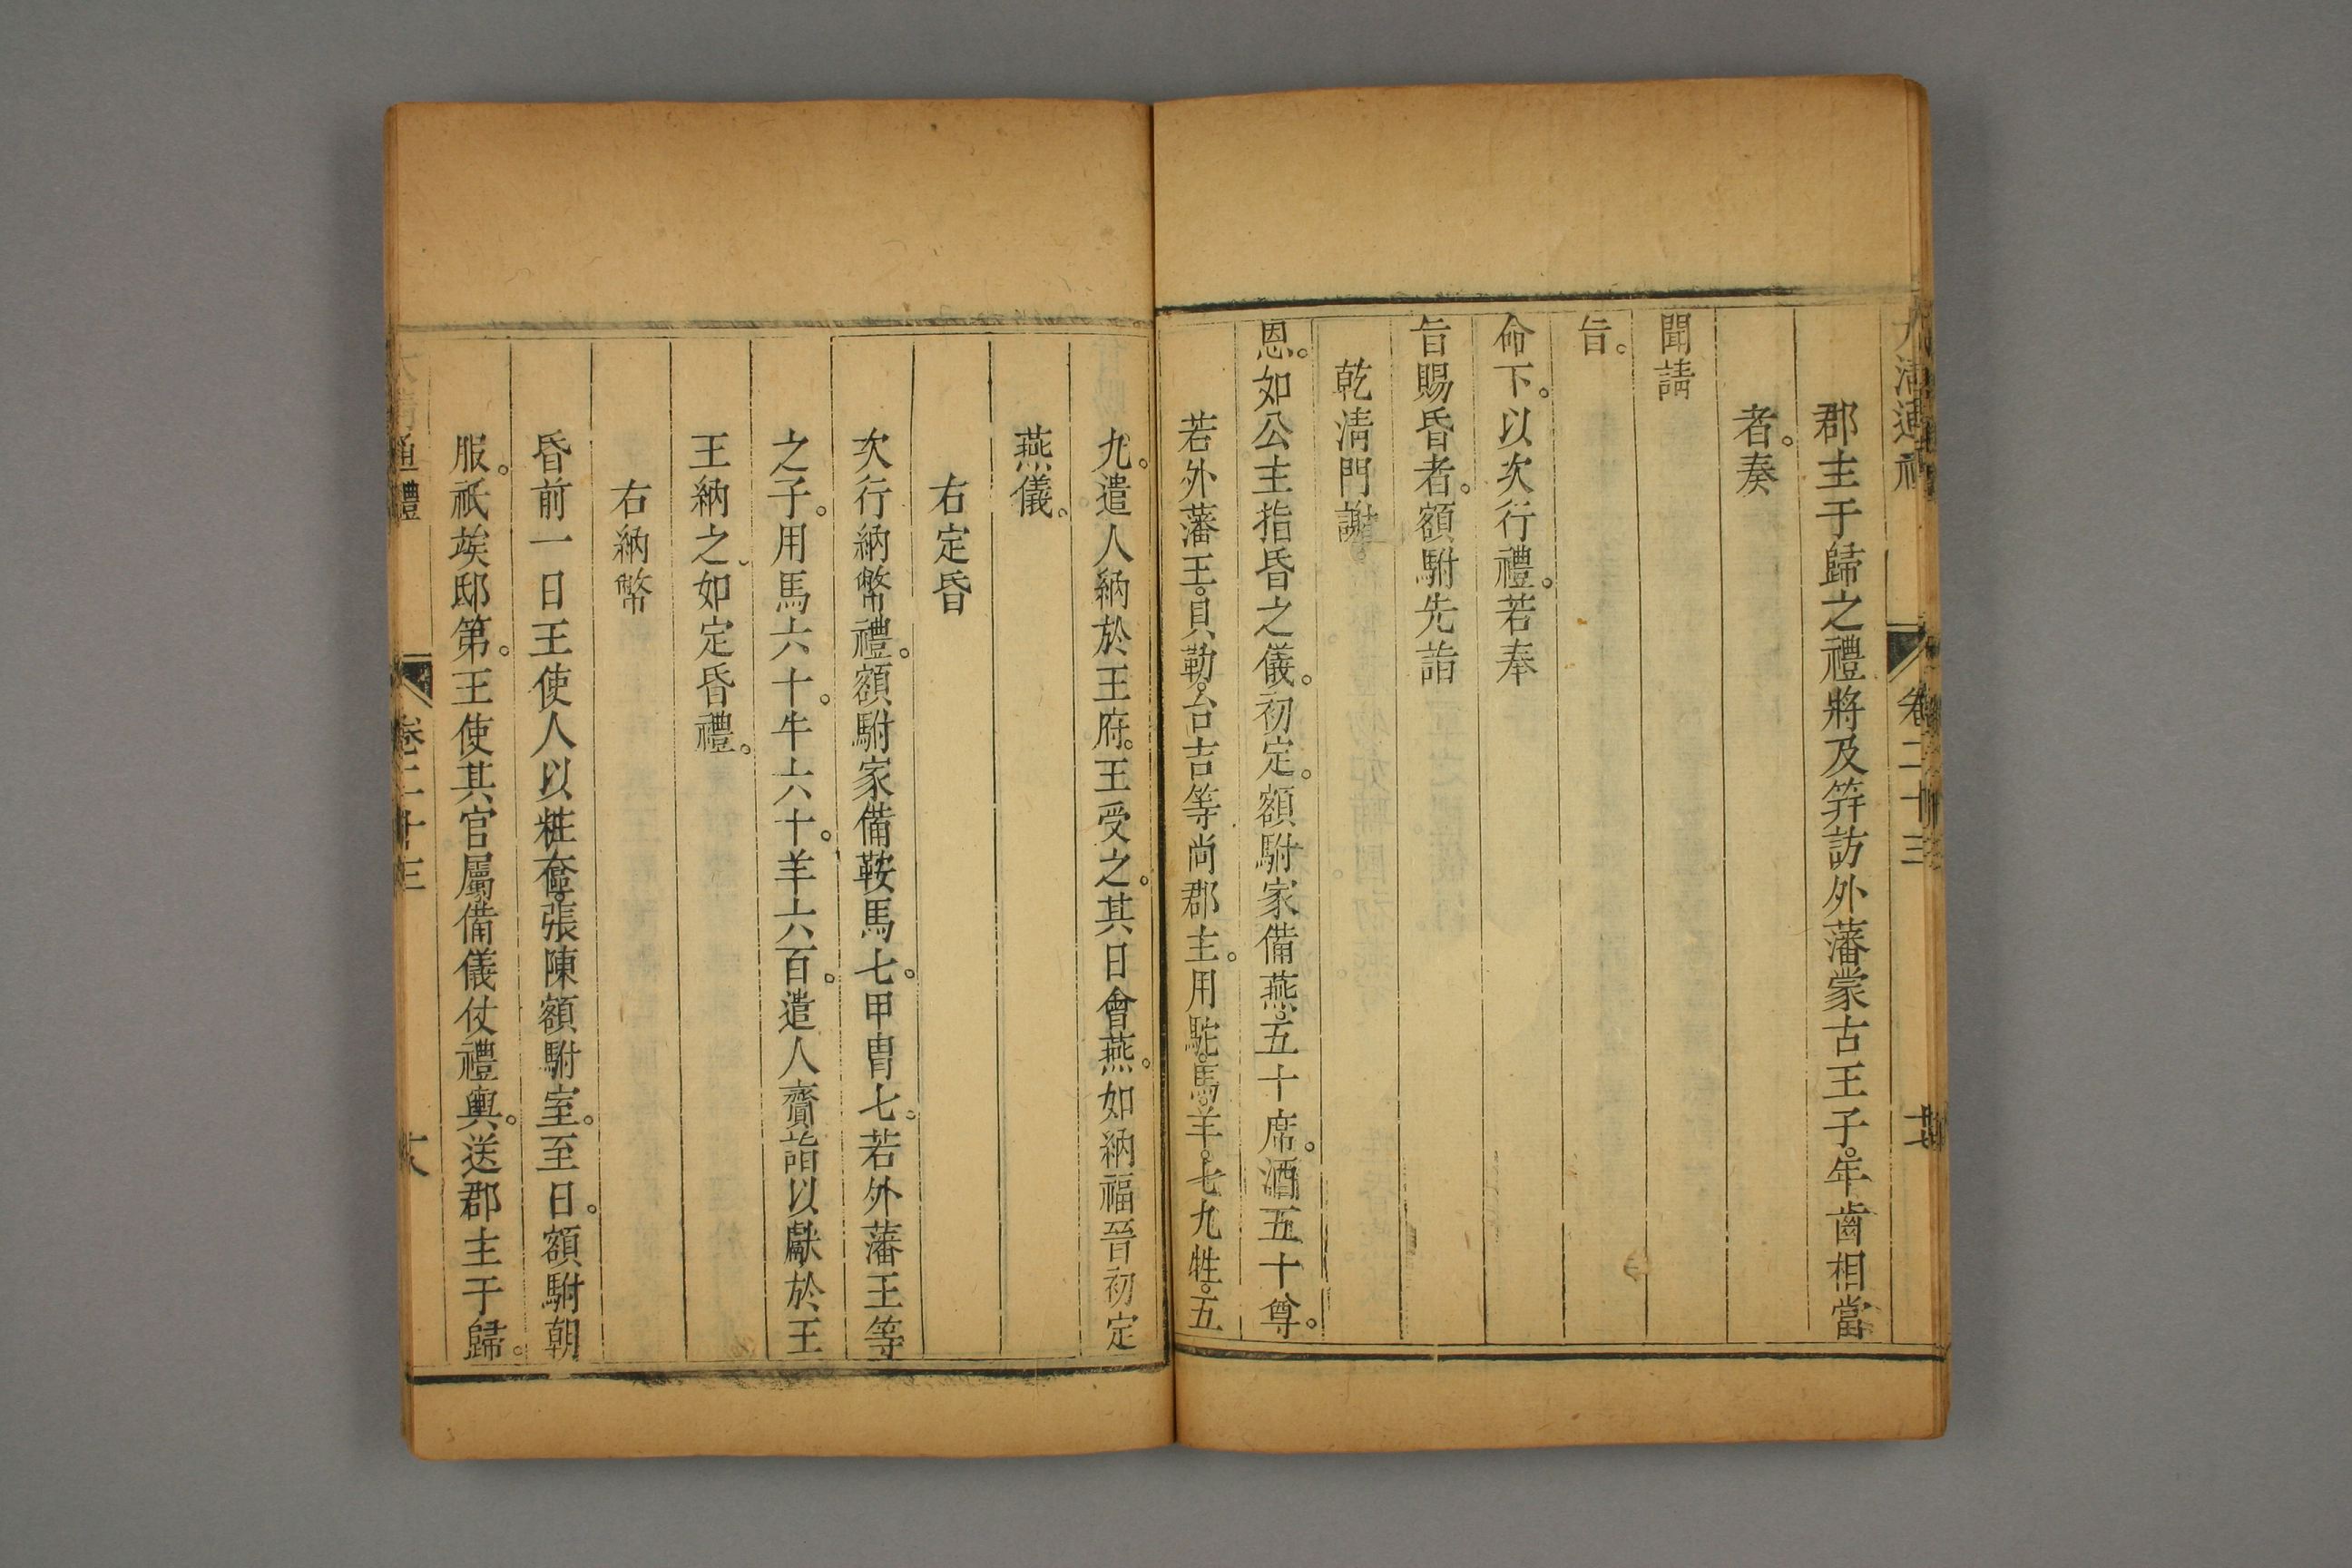 郡主于歸之禮將及笄訪外藩蒙古王子。年齒相當
者。奏
聞請
旨。
命下。以次行禮。若奉
旨賜昏者。額駙先詣
乾清門謝。
恩。如公主指昏之儀。初定。額駙家備燕。五十席。酒五十尊。
若外藩王。貝勒。台吉等尚郡主。用駝。馬。羊。七九牲。五
九。遣人納於王府。王受之。其日會燕。如納福晉初定
燕儀。
右定昏
次行納幣禮。額駙家備鞍馬七。甲冑七。若外藩王等
之子。用馬六十。牛六十。羊六百。遣人齎詣以獻於王
王納之。如定昏禮。
右納幣
昏前一日王使人以粧奩。張陳額駙室。至日。額駙朝
服。祇竢邸第。王使其官屬備儀仗禮輿。送郡主于歸。
通禮
卷二十三